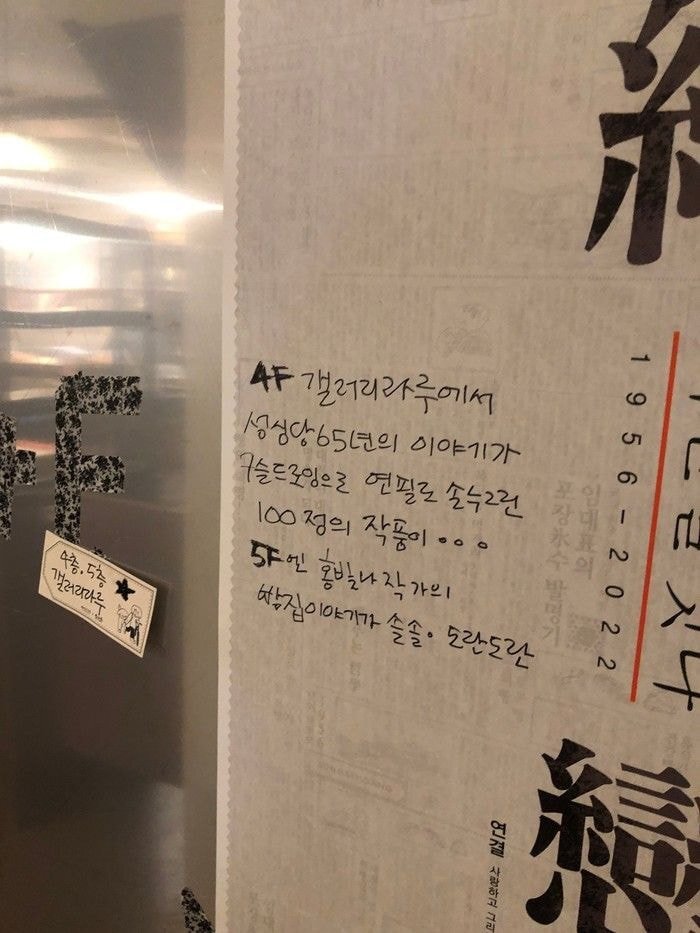 4F
4층.5층
갤러리라루
4F 갤러리라루에서
성심당65년의 이야기가
구슬드로잉으로 연필로 손수그린
100점의 작품이 。。。
5F엔 홍빛나 작가의
빵집이야기가 솔솔. 도란도란
1956-2022
임대표의
포장氷수 발명기
戀
연결 사랑하고 그리